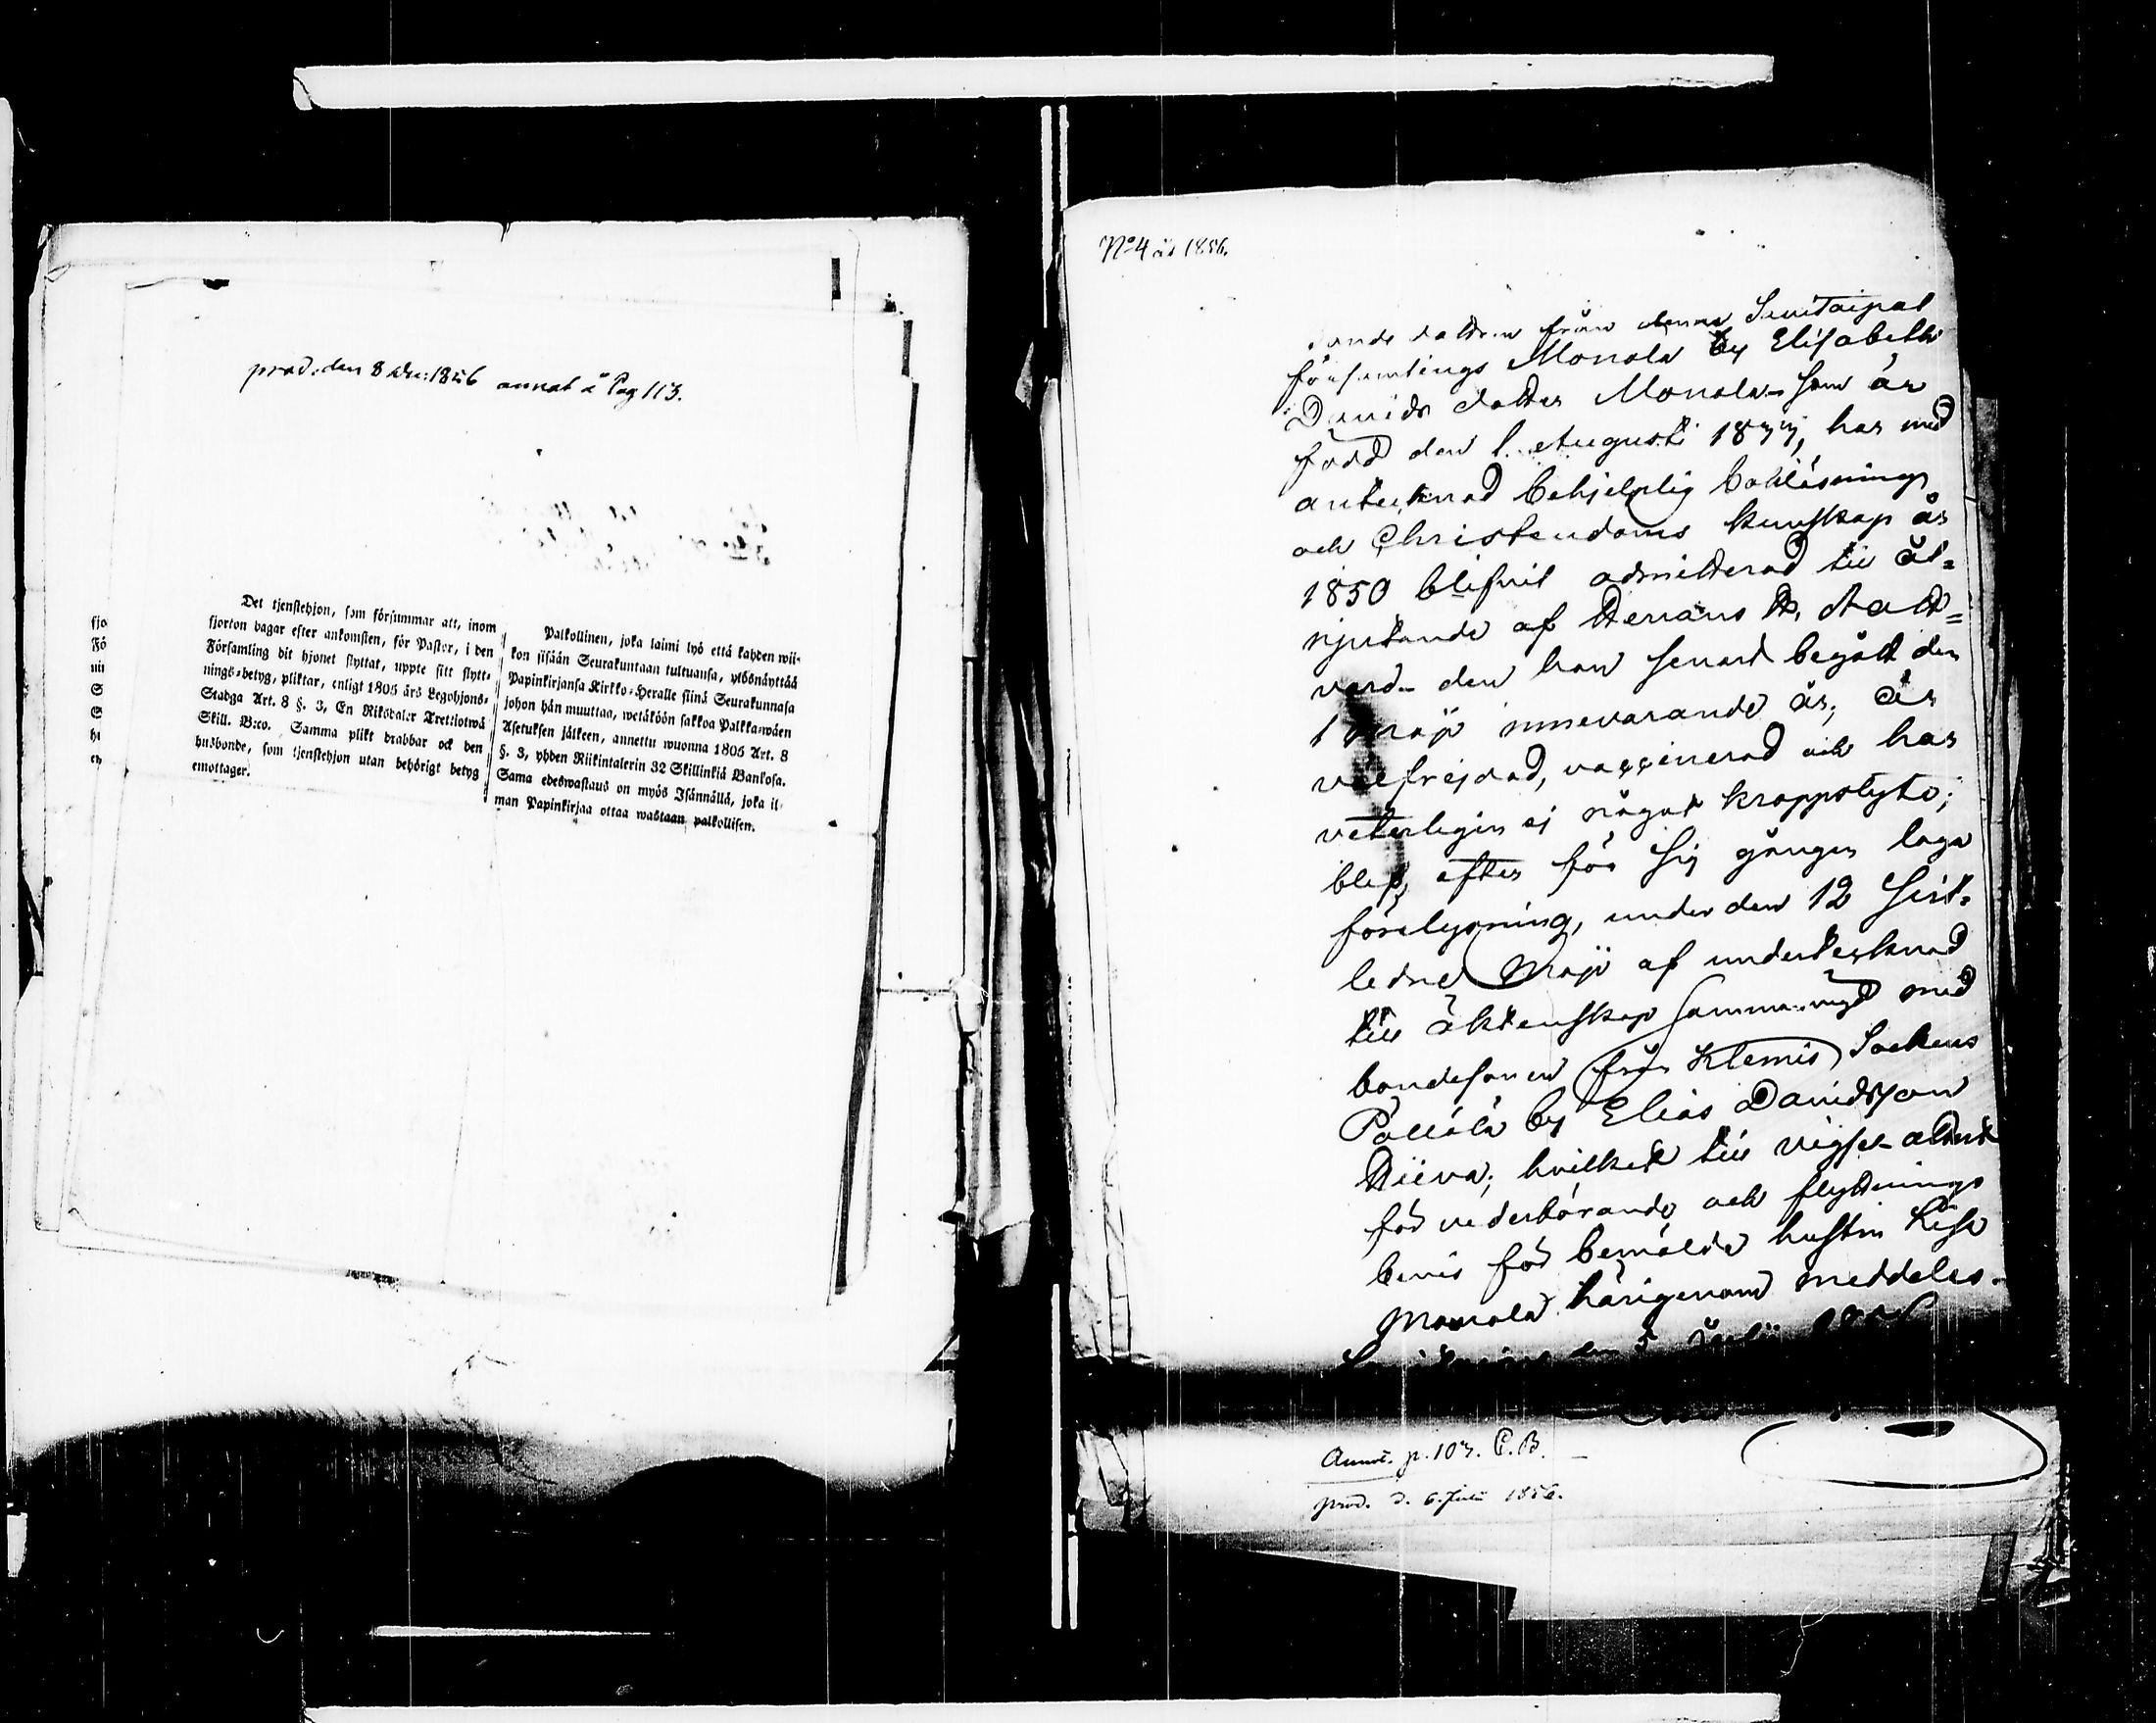 prod. den 8 Dec: 1856 annot å Pag 113.
Det tjenstehjon, som försummar att, inom
fjorton dagar efter ankomsten, för Pastor, i den
Församling dit hjonet flyttat, uppte sitt flytt-
nings-betyg, pliktar, enligt 1805 års Legohjons-
Stadga Art. 8 §. 3, En Riksdaler Trettiotwå
Skill. B:co. Samma plikt drabbar ock den
husbonde, som tjenstehjon utan behörigt betyg
emottager.
Palkollinen, joka laimi lyö että kahden wii-
kon sisään Seurakuntaan tultuansa, ylösnäyttää
Papinkirjansa Kirkko-Heralle siinä Seurakunnasa
johon hän muuttaa, wetäköön sakkoa Palkkawäen
Asetuksen jälkeen, annettu wuonna 1805 Art. 8
§. 3, yhden Riikintalerin 32 Skillinkiä Bankosa.
Sama edeswastaus on myös Isännällä, joka il-
man Papinkirjaa ottaa wastaan palkollisen.
fjo
Fö
nin
S
S
hu
en
No 4 år 1856.
dottren från denna Savitaipal
församlings Monola by Elisabeth
Davids dotter Monola som är
född den 1 Augusti 1837, har med
antecknad behjelplig bokläsnings
och Christendoms kunskap år
1850 blifvit admitterad till åt-
njutande af Herrans H. Natt-
vard den hon senast begått den
1 Maji innevarande år; är
välfrejdad, vaccinerad och har
veterligen ej något kroppslyte;
blef, efter för sig gången laga
förelysning, under den 12 sist-
ledne Maji af undertecknad
till äktenskap sammanvigd med
bondesonen från Klemis Sockens
Pällälä by Elias Davidsson
Hiiva; hvilket till vigsel-attest
för vederbörande och flyttnings
bevis för bemälde hustru Lisa
Monola härigenom meddeles.
den 5
Annot. p. 107. C.B.
prod. d. 6. Juli 1856.